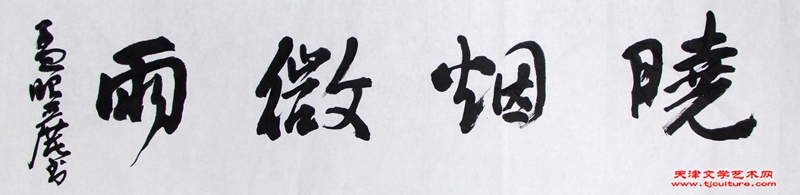 曉烟微雨
孟昭麗书
天津文学艺术网
www.tjculture.com